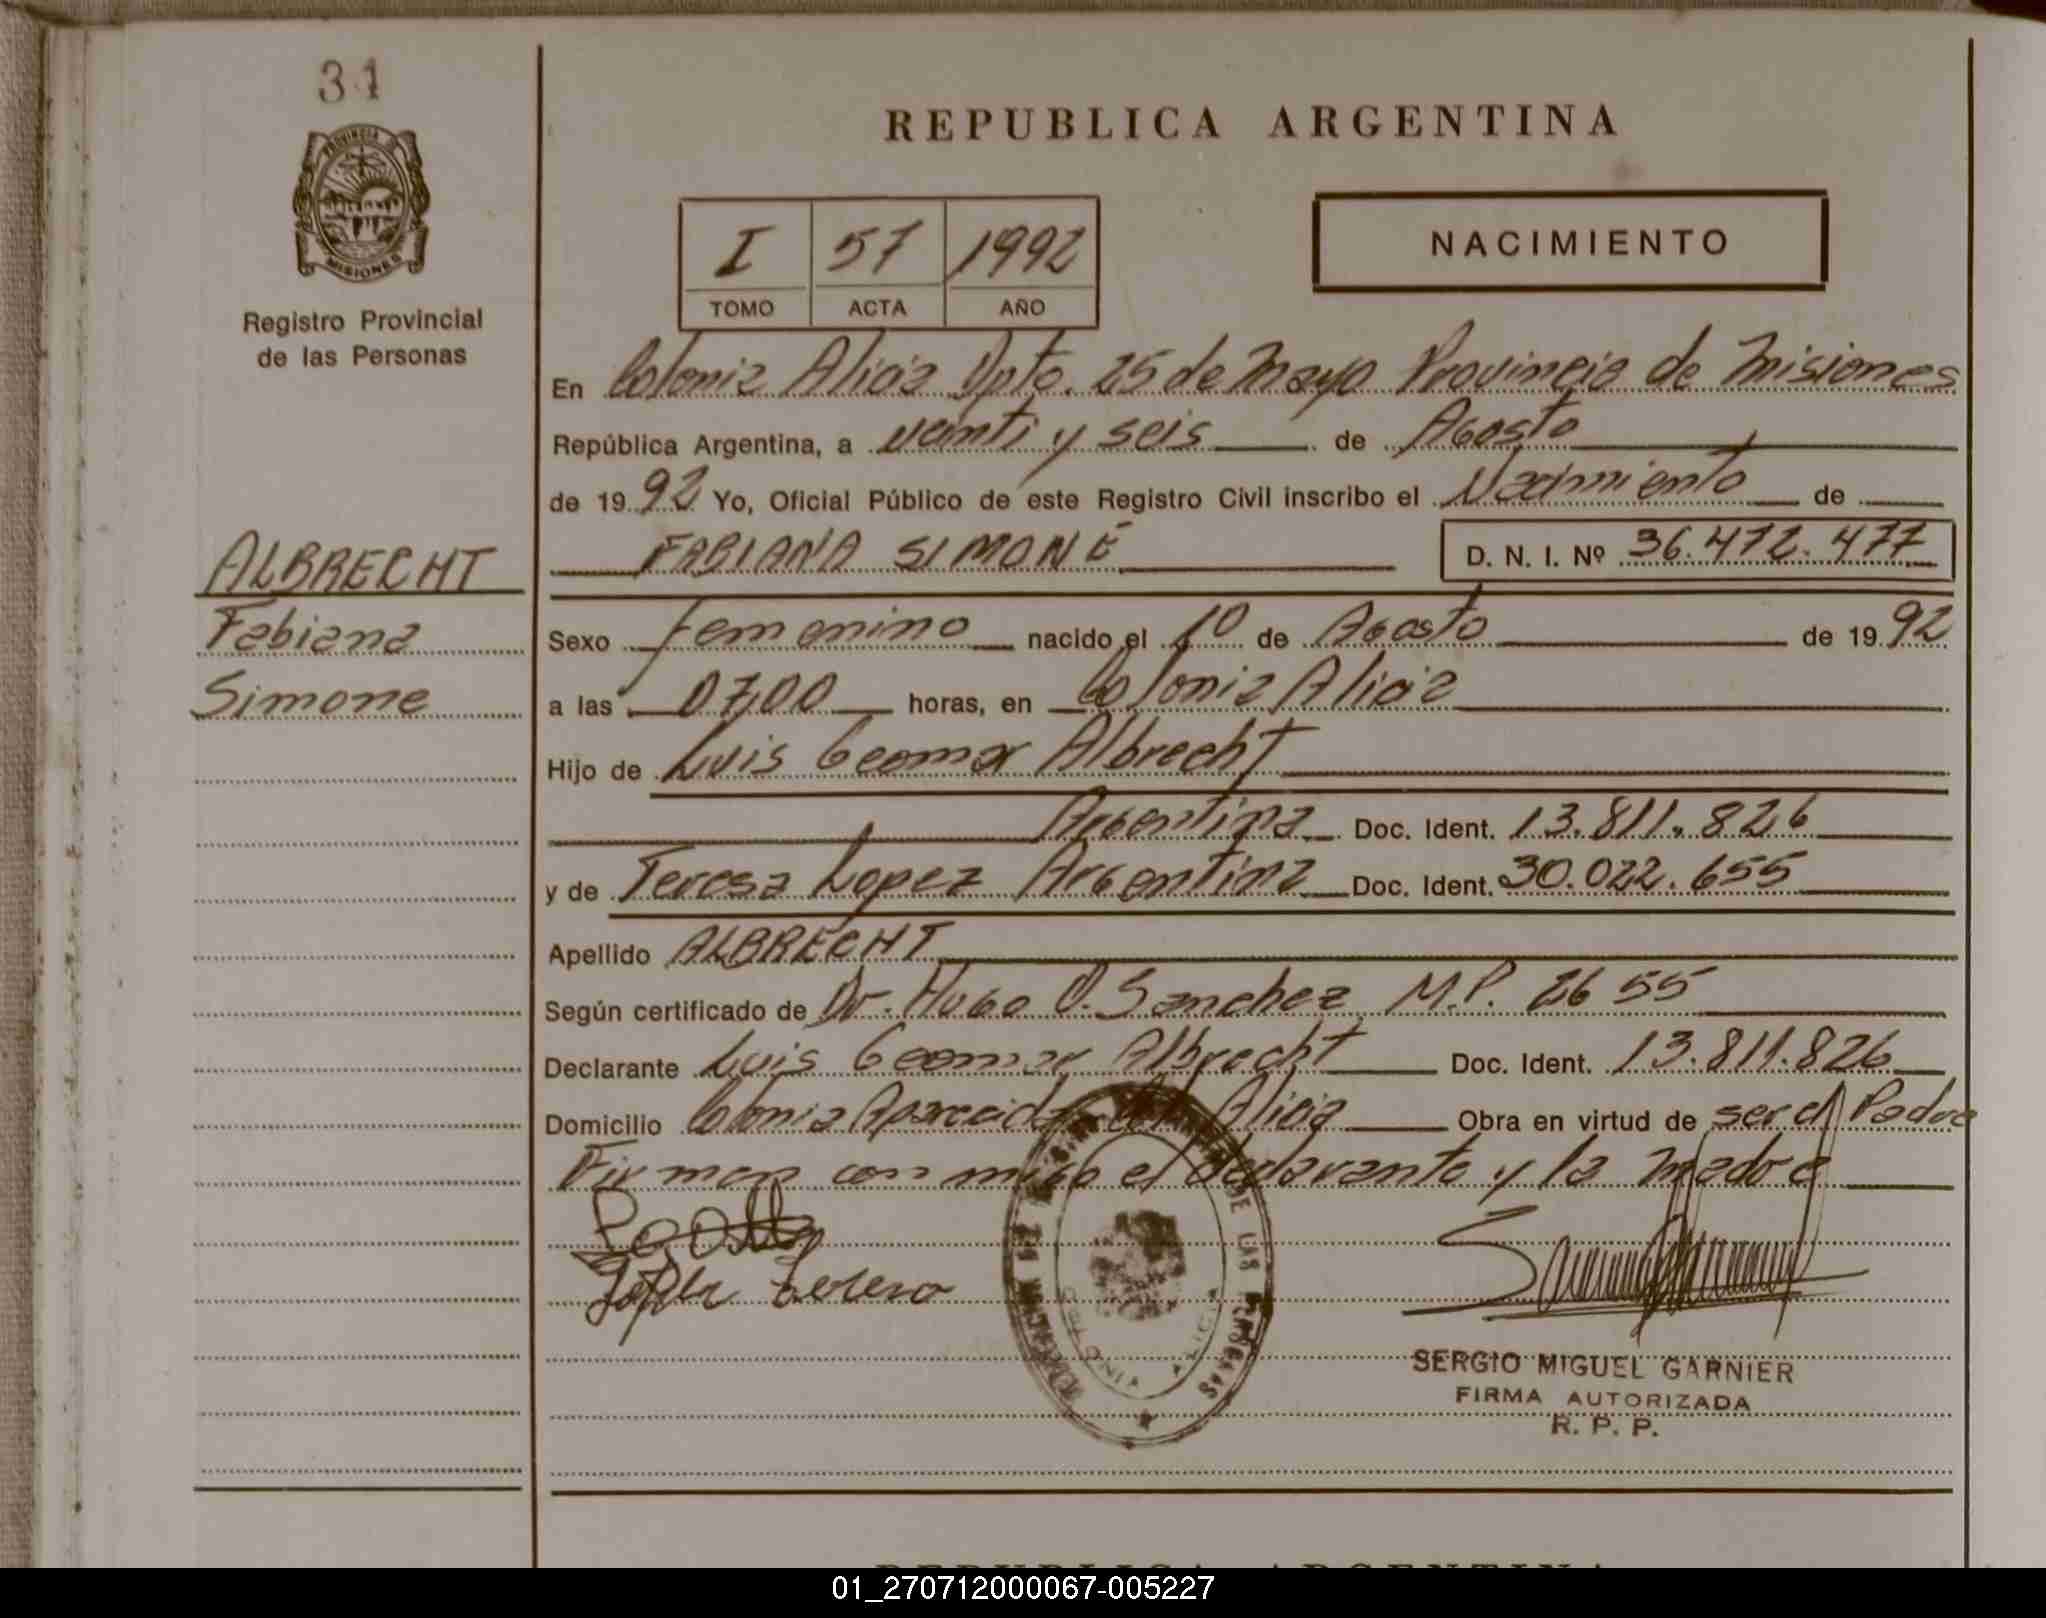 31
PROVINCIA D
MISIONES
Registro Provincial
de las Personas
REPUBLICA ARGENTINA
I 57 1992
TOMO ACTA AÑO
NACIMIENTO
En Colonia Alicia Dpto. 25 de Mayo Provincia de Misiones
República Argentina, a veinti y seis de Agosto
de 1992 Yo, Oficial Público de este Registro Civil inscribo el Nacimiento de
FABIANA SIMONE D. N. I. Nº 36.472.477
ALBRECHT
Fabiana
Simone
Sexo femenino nacido el 10 de Agosto de 1992
a las 07,00 horas, en Colonia Alicia
Hijo de Luis Geomar Albrecht
Argentina Doc. Ident. 13.811.826
y de Teresa Lopez Argentina Doc. Ident. 30.022.655
Apellido ALBRECHT
Según certificado de Dr. Hugo O. Sanchez M.P. 2655
Declarante Luis Geomar Albrecht Doc. Ident. 13.811.826
Domicilio Colonia Aparecida Alicia Obra en virtud de ser el Padre
Firman con migo el declarante y la madre
DE LAS PERSONAS
ALICIA
SERGIO MIGUEL GARNIER
FIRMA AUTORIZADA
R. P. P.
REPUBLICA ARGENTINA
01_270712000067-005227